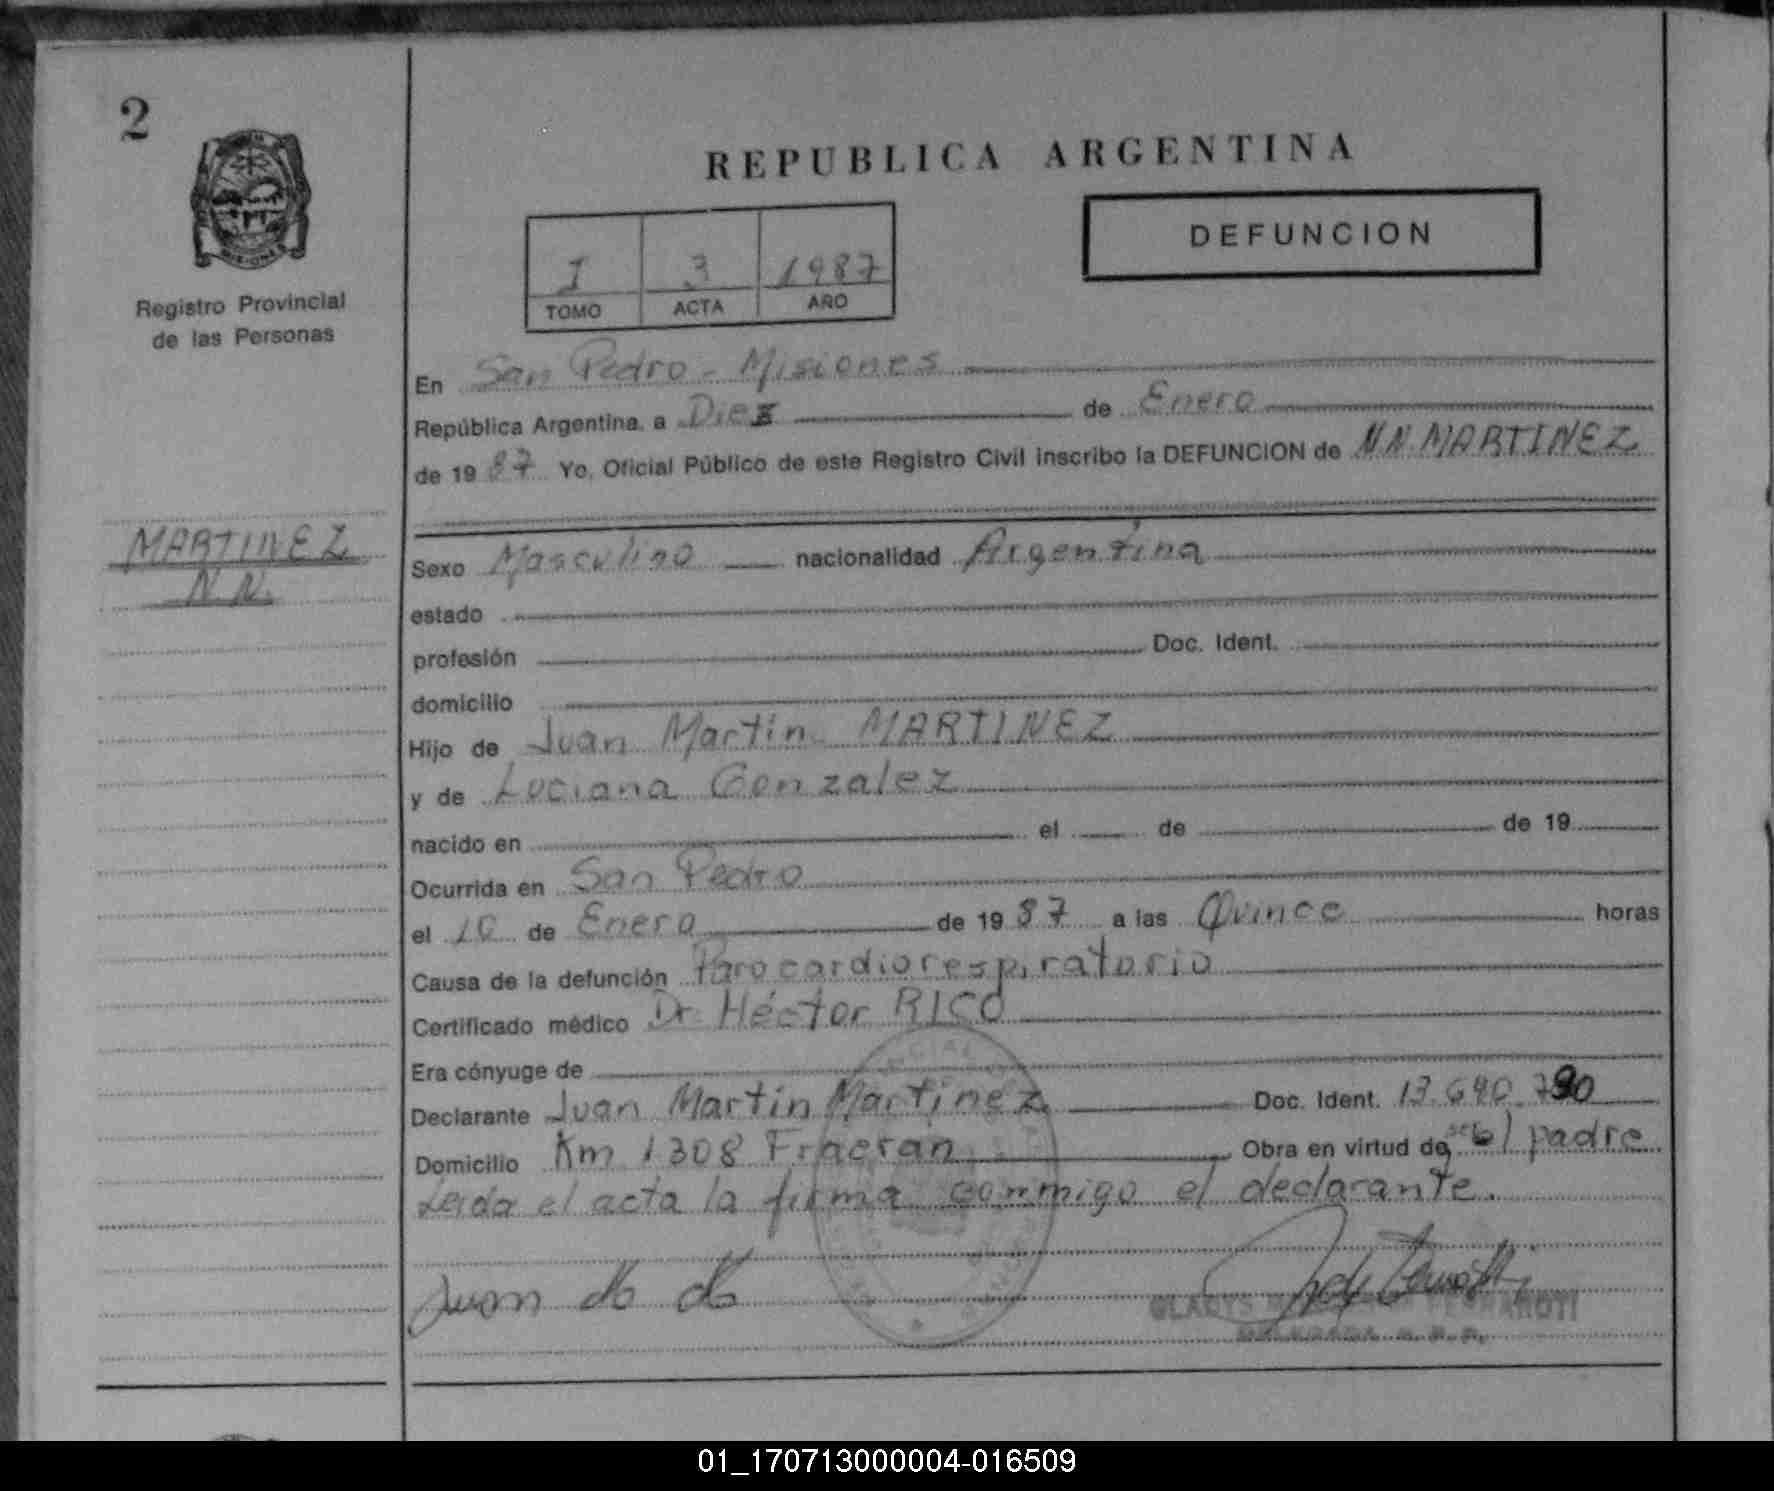 2
REPUBLICA ARGENTINA
DEFUNCION
I 3 1987
TOMO ACTA AÑO
Registro Provincial
de las Personas
En San Pedro - Misiones
República Argentina, a Diez de Enero
de 19 87 Yo, Oficial Público de este Registro Civil inscribo la DEFUNCION de N.N. MARTINEZ
MARTINEZ
N.N.
Sexo Masculino nacionalidad Argentina
estado
profesión Doc. Ident.
domicilio
Hijo de Juan Martin MARTINEZ
y de Luciana Gonzalez
nacido en el de de 19
Ocurrida en San Pedro
el 10 de Enero de 19 87 a las Quince horas
Causa de la defunción Paro cardiorespiratorio
Certificado médico Dr. Héctor RICO
Era cónyuge de
Declarante Juan Martin Martinez Doc. Ident.
Domicilio Km 1308 Fracran Obra en virtud de padre
Leida el acta la firma conmigo el declarante.
Juan
GLADYS
01_170713000004-016509